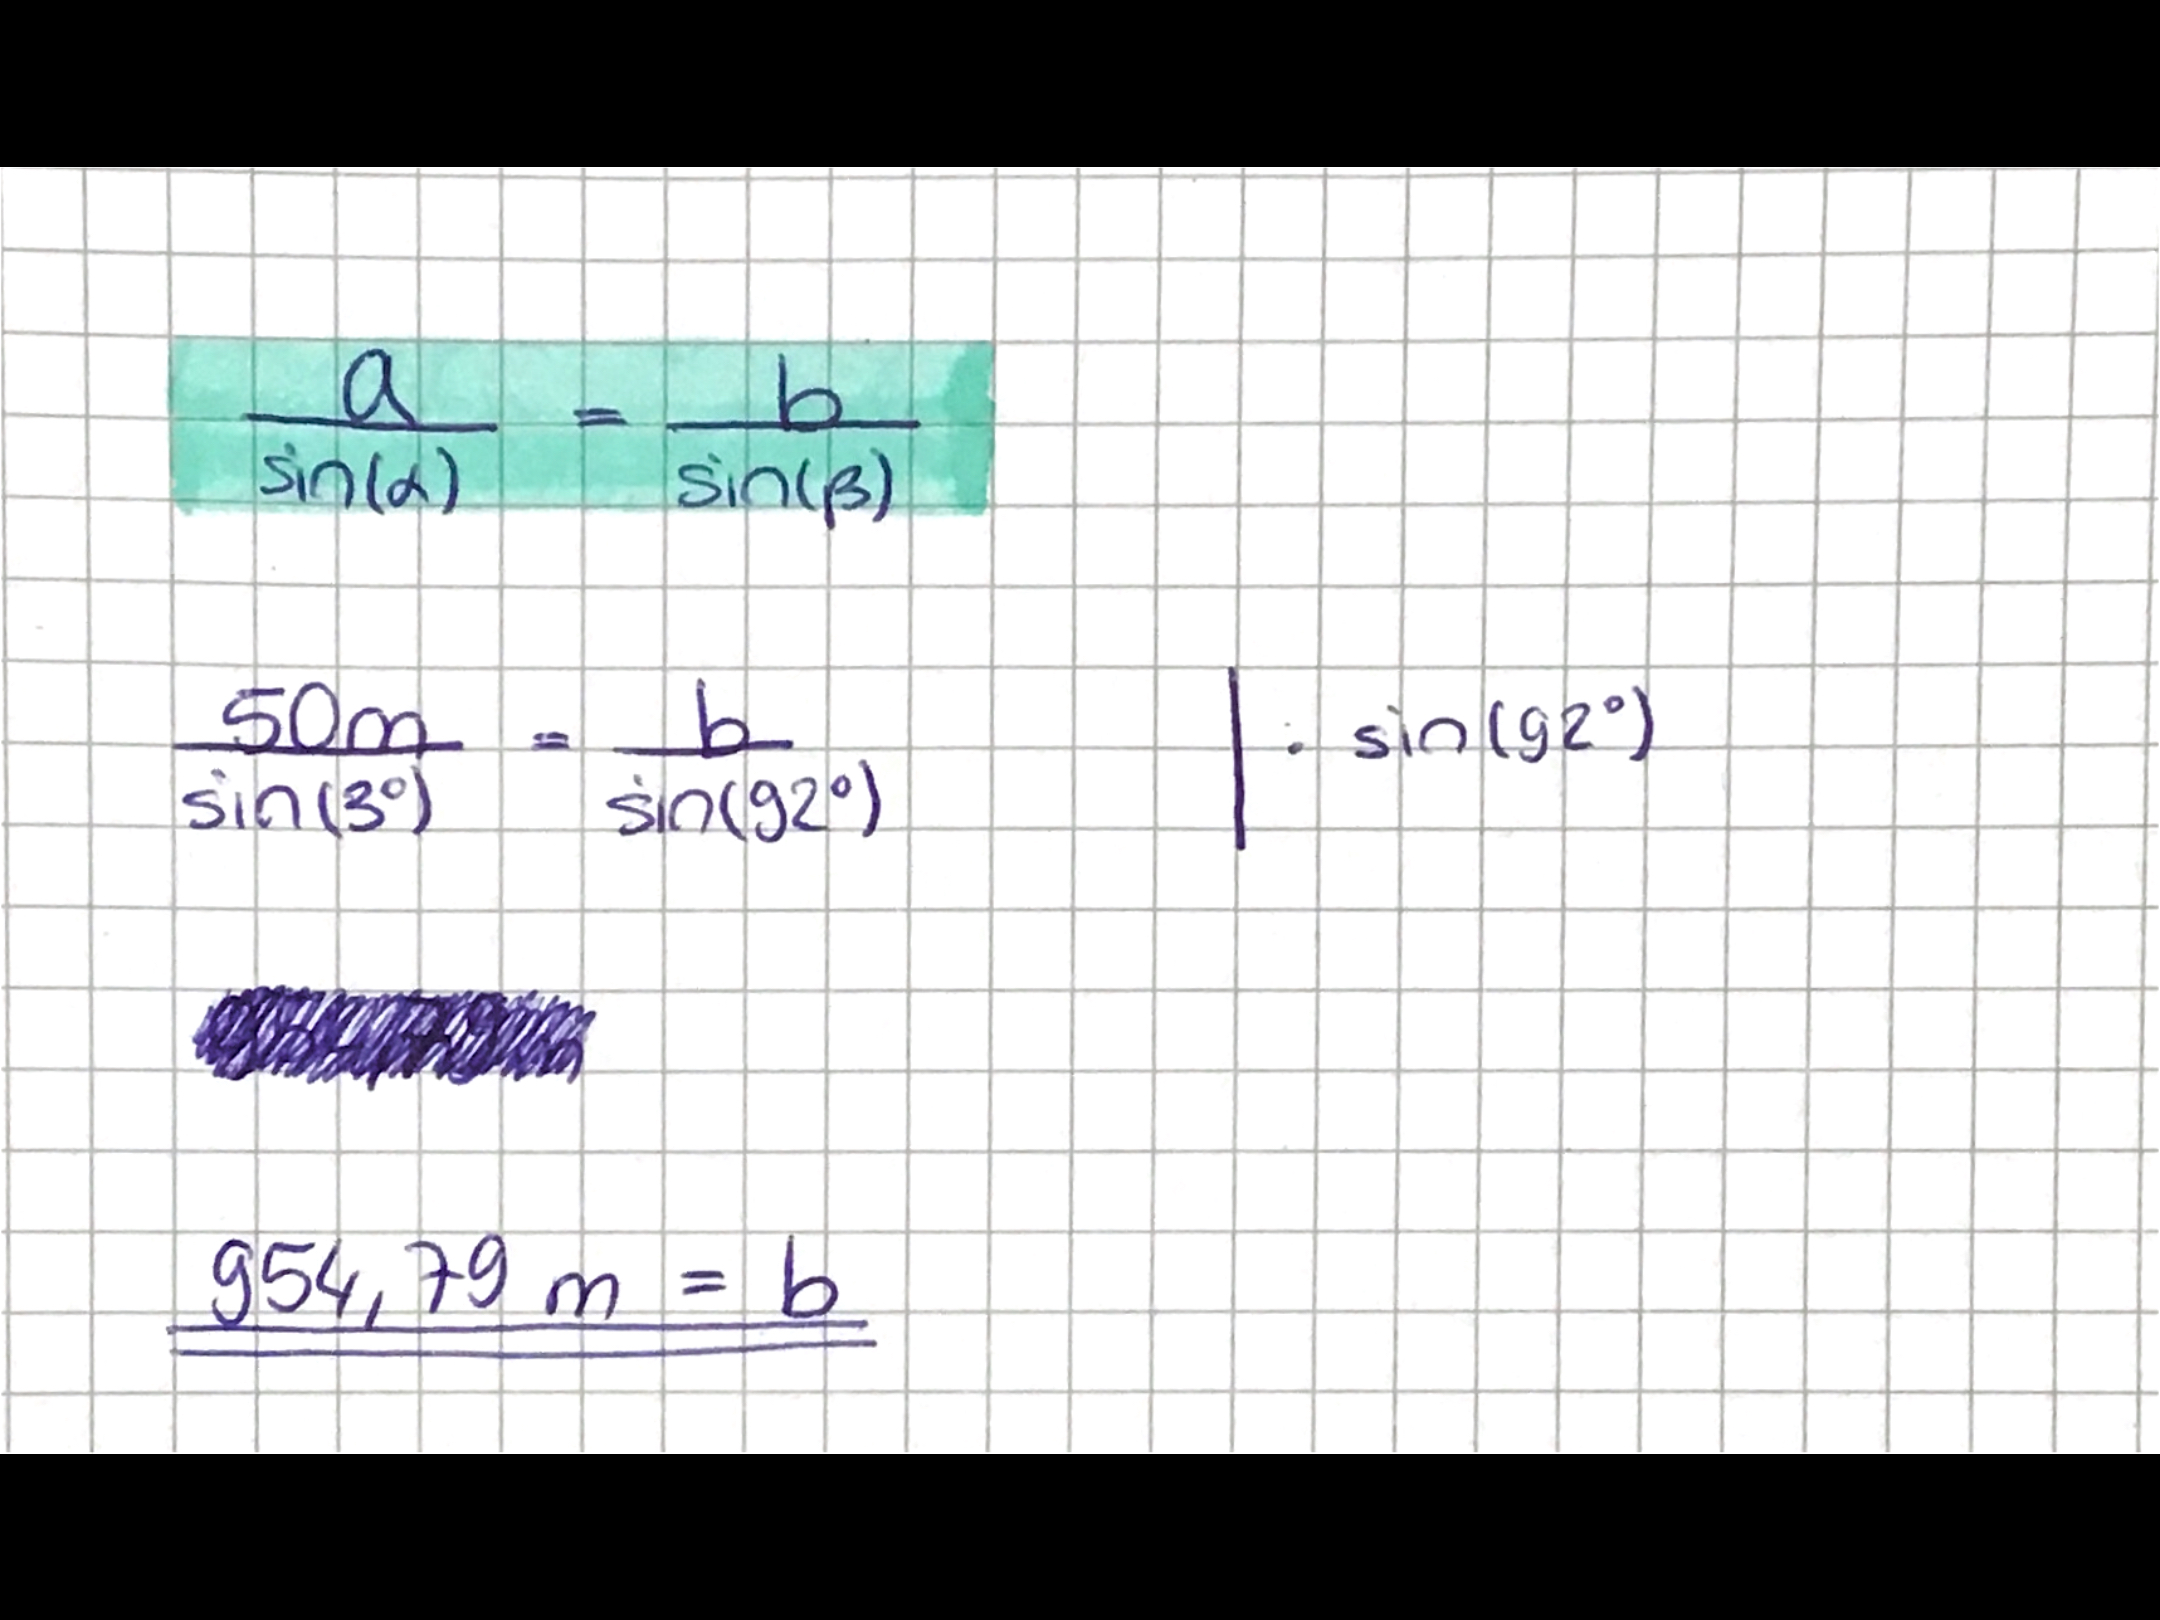 a/sin(α) = b/sin(β)
50m/sin(3°) = b/sin(92°) | · sin(92°)
954,79 m = b